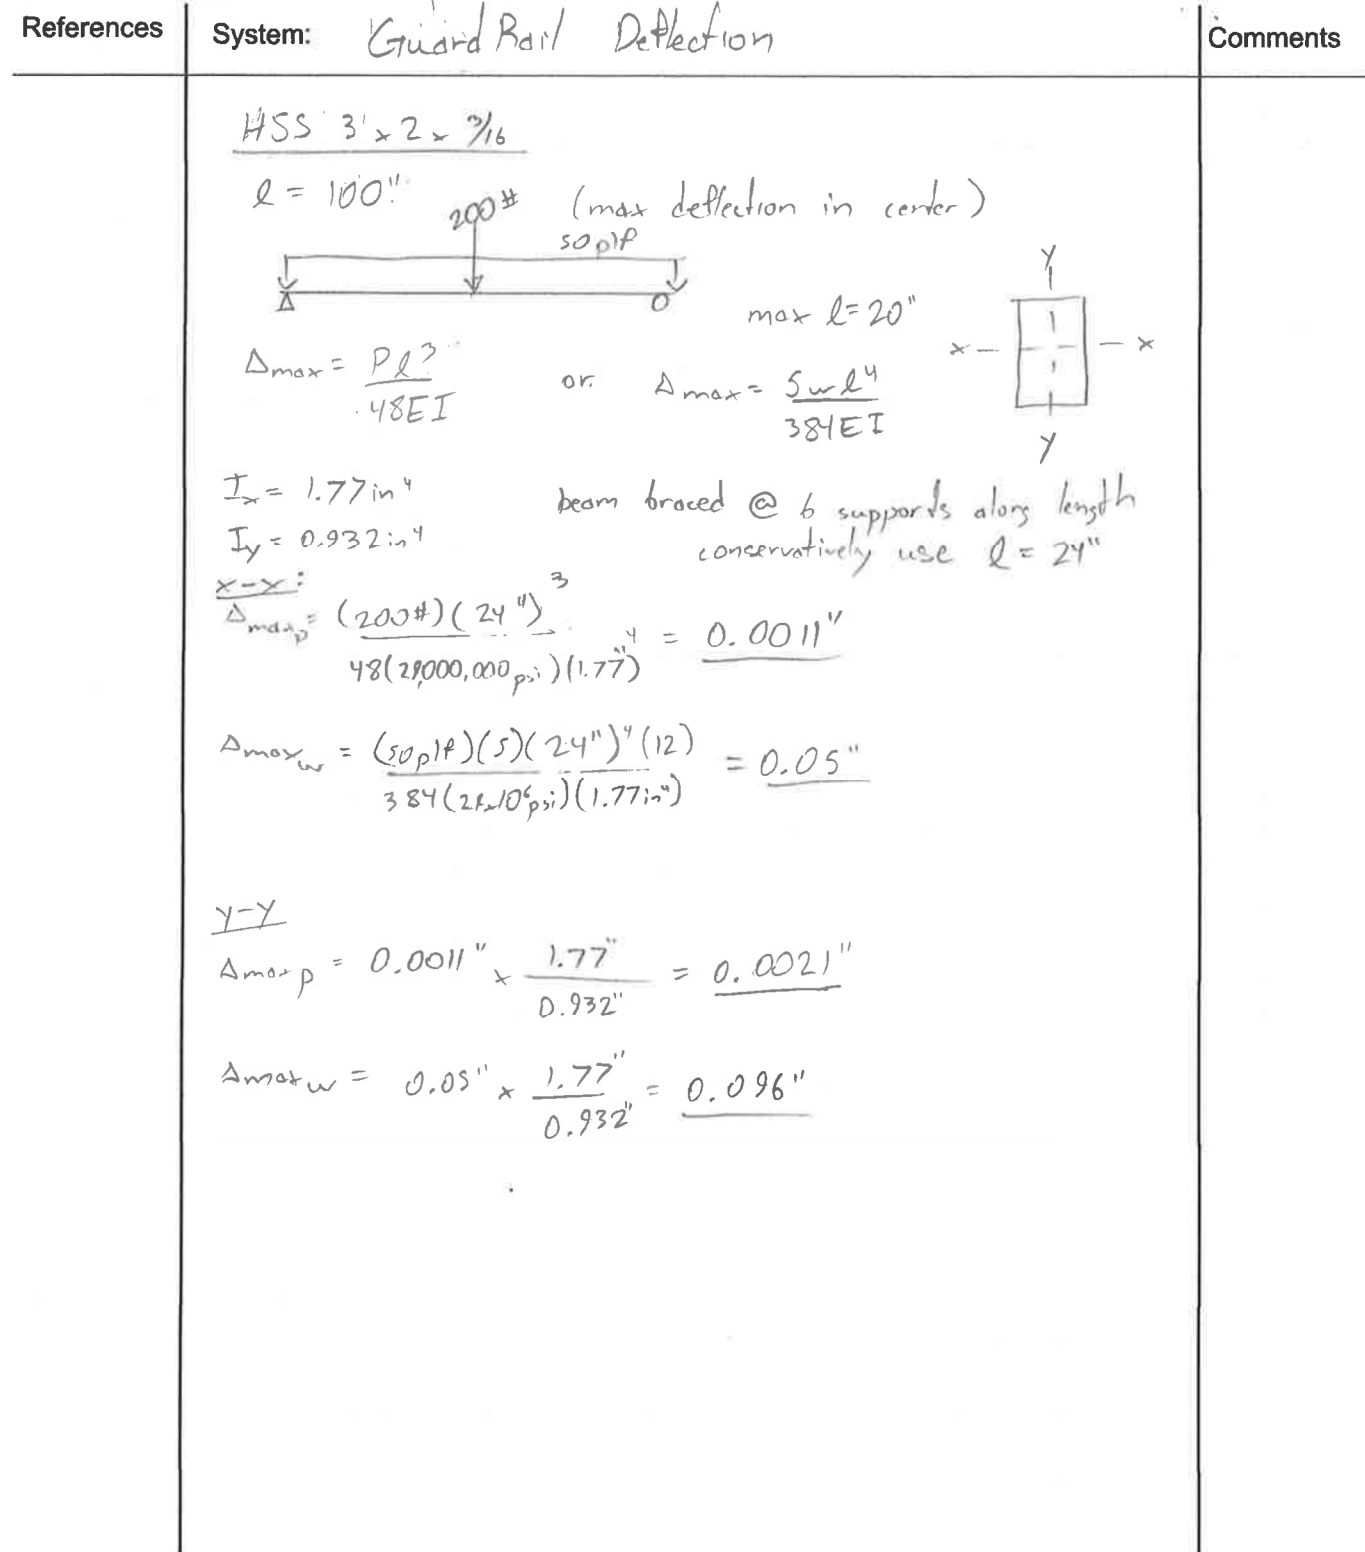 References
System: Guard Rail Deflection
Comments
HSS 3 x 2 x 3/16
l = 100"
200# (max deflection in center)
50 plf
max l = 20"
Y
x — — x
Y
Δmax = Pl³ / 48EI or Δmax = 5wl⁴ / 384EI
Ix = 1.77 in⁴
Iy = 0.932 in⁴
beam braced @ 6 supports along length
conservatively use l = 24"
x-x:
Δmaxp = (200#)(24")³ / 48(29,000,000 psi)(1.77")⁴ = 0.0011"
Δmaxw = (50 plf)(5)(24")⁴(12) / 384(29x10⁶psi)(1.77in⁴) = 0.05"
Y-Y
Δmaxp = 0.0011" x 1.77" / 0.932" = 0.0021"
Δmaxw = 0.05" x 1.77" / 0.932" = 0.096"